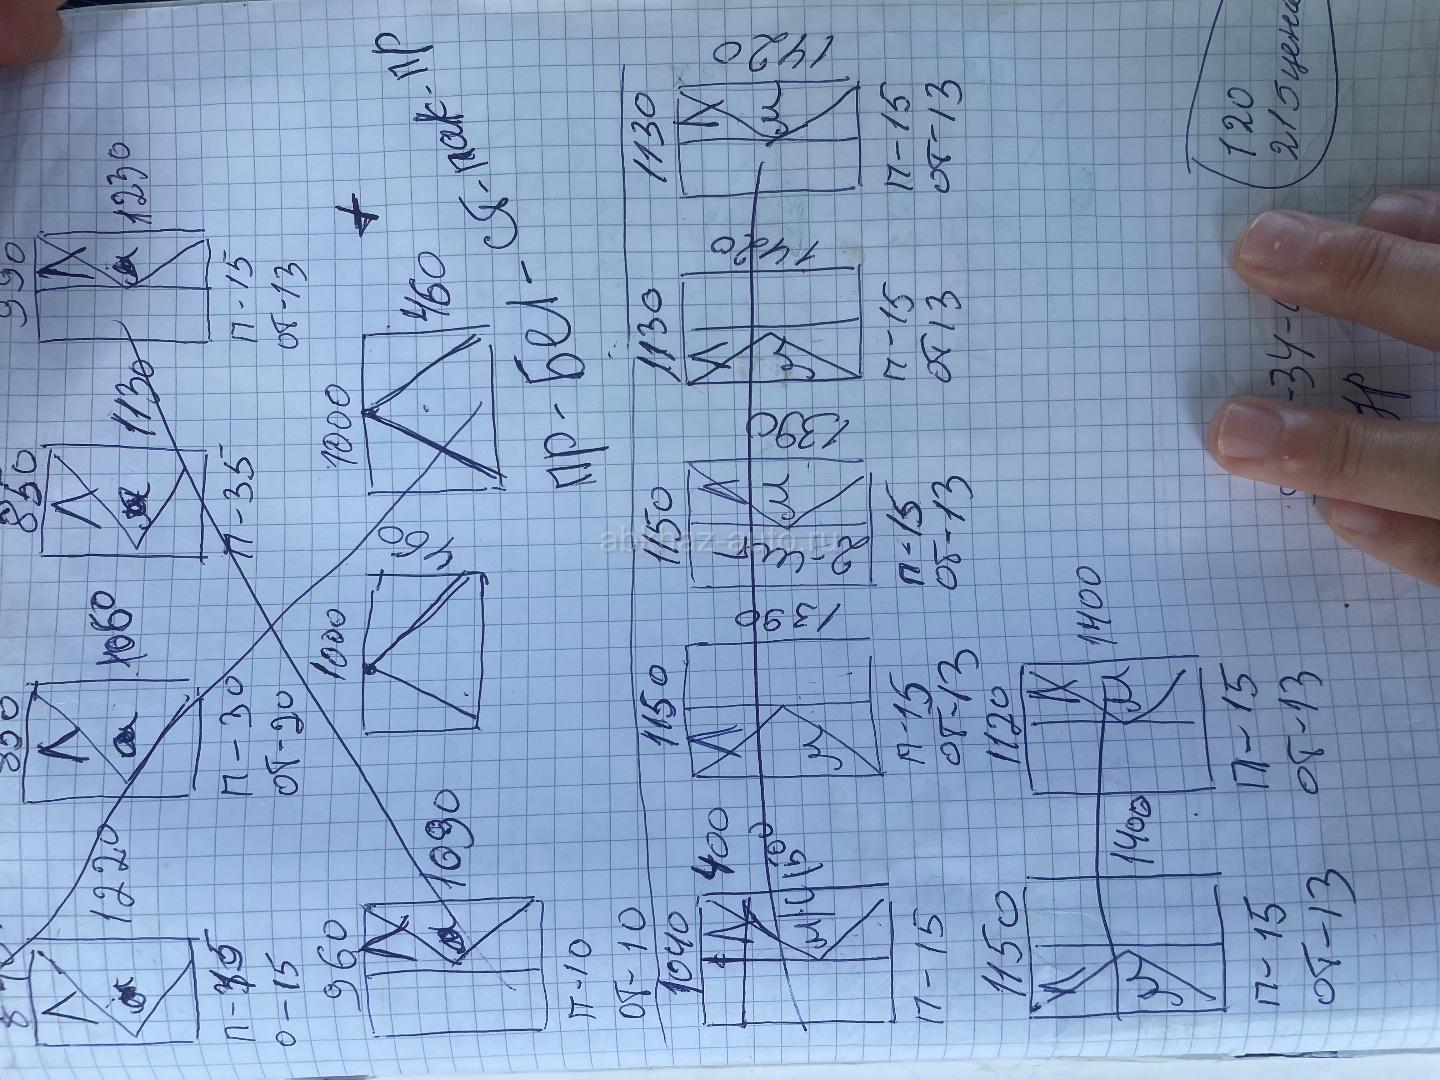 990
1230
П-15
от-13
850
1130
П-35
1060
П-30
от-20
1220
О-15
960
1090
П-10
от-10
1000
460
1000
460
+
пр-бел-
1130
1420
П-15
от-13
1130
1420
П-15
от 13
1150
1390
П-15
от-13
1150
1390
П-15
от-13
1040
400
П-15
1120
1400
П-15
от-13
1150
1400
П-15
от-13
120
215 цена
abkhaz-auto.ru